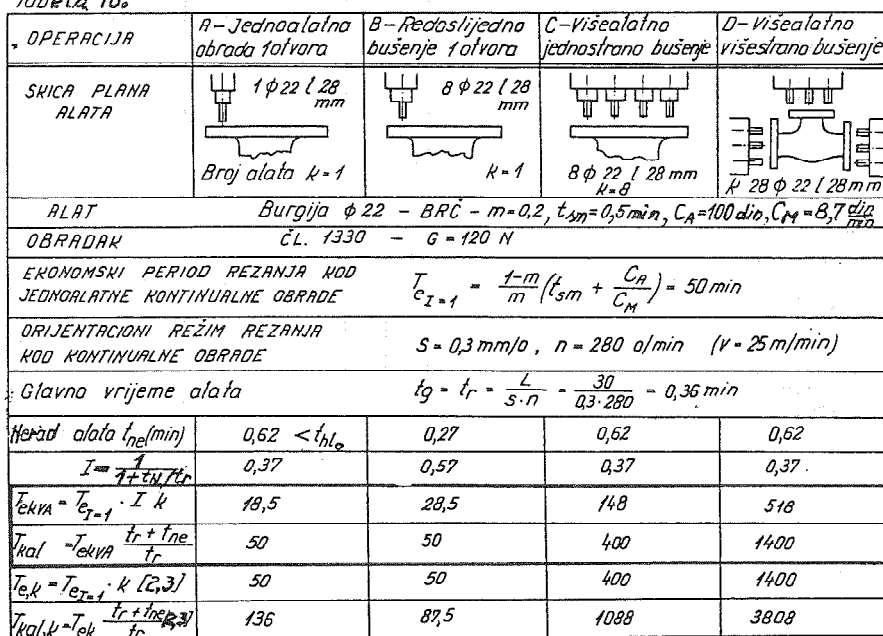 Tabela 10.
OPERACIJA
A-Jednoalatna obrada 1otvora
B-Redoslijedno bušenje 1otvora
C-Višealatno jednostrano bušenje
D-Višealatno višestrano bušenje
SKICA PLANA ALATA
1 φ 22 l 28 mm
Broj alata k=1
8 φ 22 l 28 mm
k=1
8 φ 22 l 28 mm
k=8
k 28 φ 22 l 28 mm
ALAT
Burgija φ 22 - BRČ - m=0,2, tsm=0,5min, CA=100 din, CM=8,7 din/min
OBRADAK
ČL. 1330 - G = 120 N
EKONOMSKI PERIOD REZANJA KOD
JEDNOALATNE KONTINUALNE OBRADE
TeI=1 = 1-m/m (tsm + CA/CM) = 50 min
ORIJENTACIONI REŽIM REZANJA
KOD KONTINUALNE OBRADE
S = 0,3 mm/o, n = 280 o/min (v = 25 m/min)
Glavno vrijeme alata
tg = tr = L/s·n = 30/0,3·280 = 0,36 min
Nerad alata tne(min) 0,62 < thl 0,27 0,62 0,62
I = 1/1+tN/tr 0,37 0,57 0,37 0,37
TekvA = TeI=1 · I k 18,5 28,5 148 518
Tkal = TekvA tr + tne/tr 50 50 400 1400
Te,k = TeI=1 · k [2,3] 50 50 400 1400
Tkal,k = Tek tr + tne/tr [2,3] 136 87,5 1088 3808